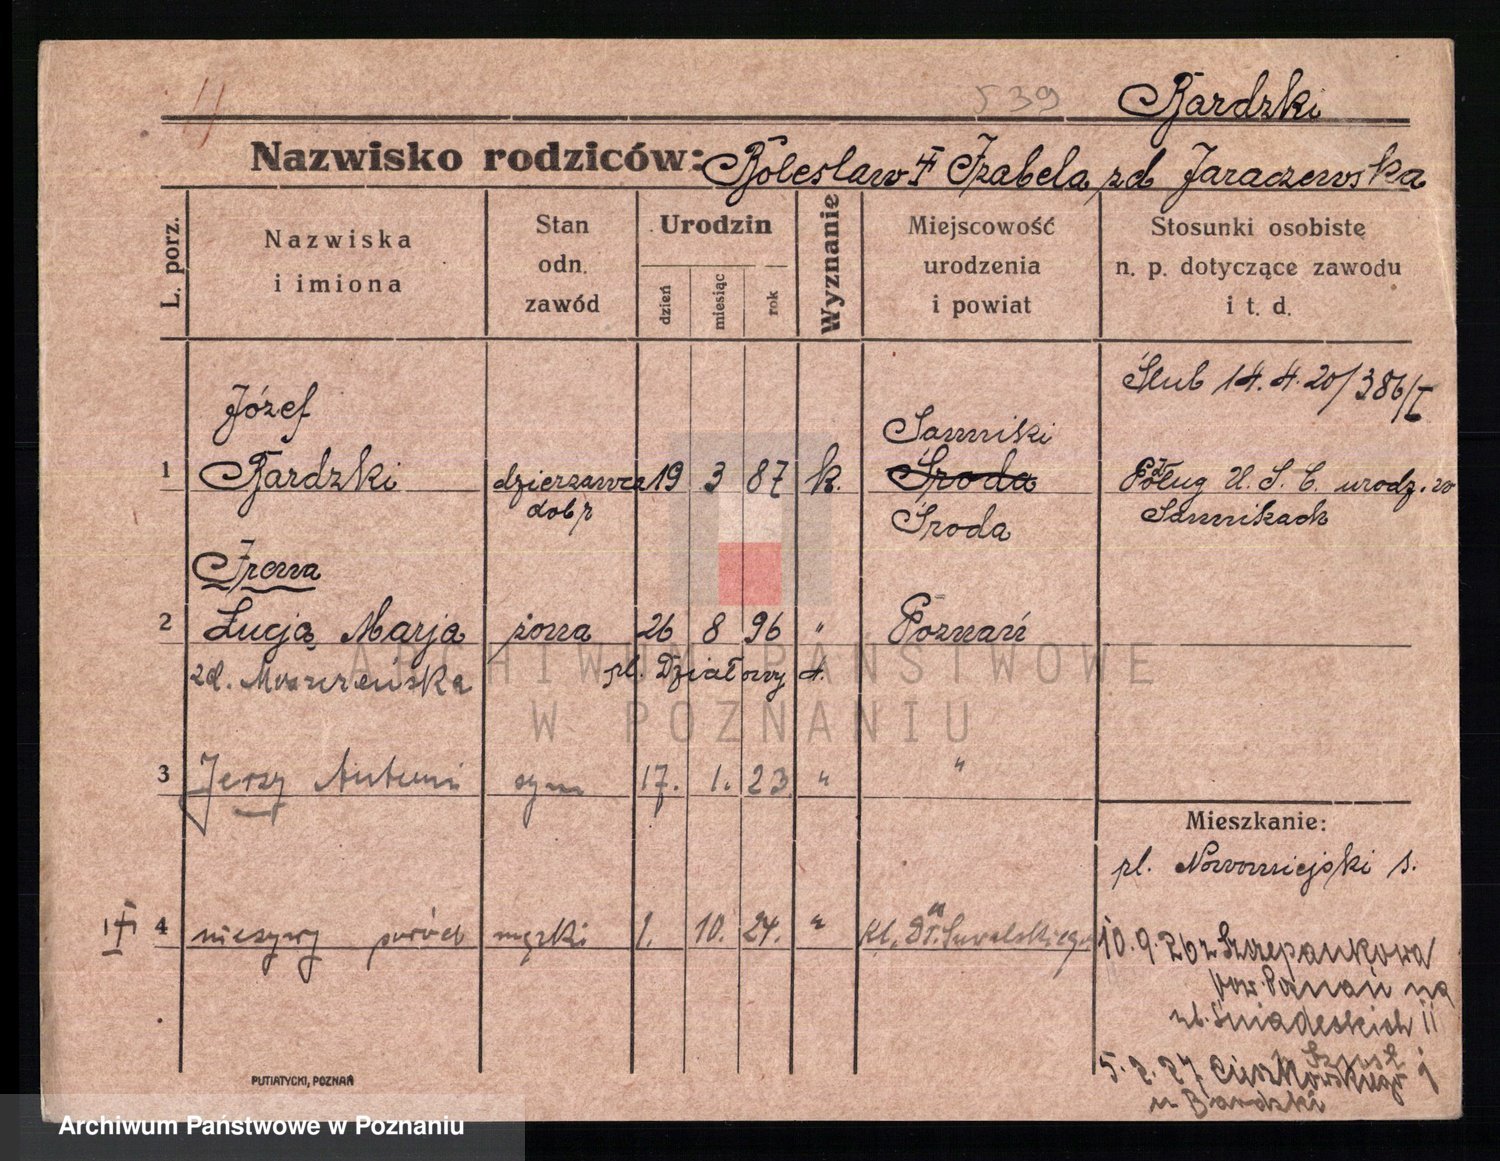 539
Bardzki
Nazwisko rodziców: Bolesław Izabela zd Jaraczewska
L. porz.
Nazwiska
i imiona
Stan
odn.
zawód
Urodzin
dzień
miesiąc
rok
Wyznanie
Miejscowość
urodzenia
i powiat
Stosunki osobiste
n. p. dotyczące zawodu
i t. d.
Ślub 14. 4. 20/386/I
Józef
Sanniki
1 Bardzki dzierżawca 19 3 87 k. Środa
dóbr
Środa
Poług U. S. C. urodz. w
Sannikach
Irena
2 Łucja Marja żona 26 8 96 " Poznań
zd. Moszczeńska
pl. Działowy 4.
3 Jerzy Antoni syn 17. 1. 23 " "
Mieszkanie:
pl. Nowomiejski 8.
4 nieżywy poród męzki 1. 10. 24. " "
kl. Dr.
10.9.26 z Szczepankowa
pow. Poznań na
ul. Śniadeckich 11
5.2.27. Cieszkowskiego 9
u Bardzki
PUTIATYCKI, POZNAŃ
ARCHIWUM PAŃSTWOWE
W POZNANIU
Archiwum Państwowe w Poznaniu